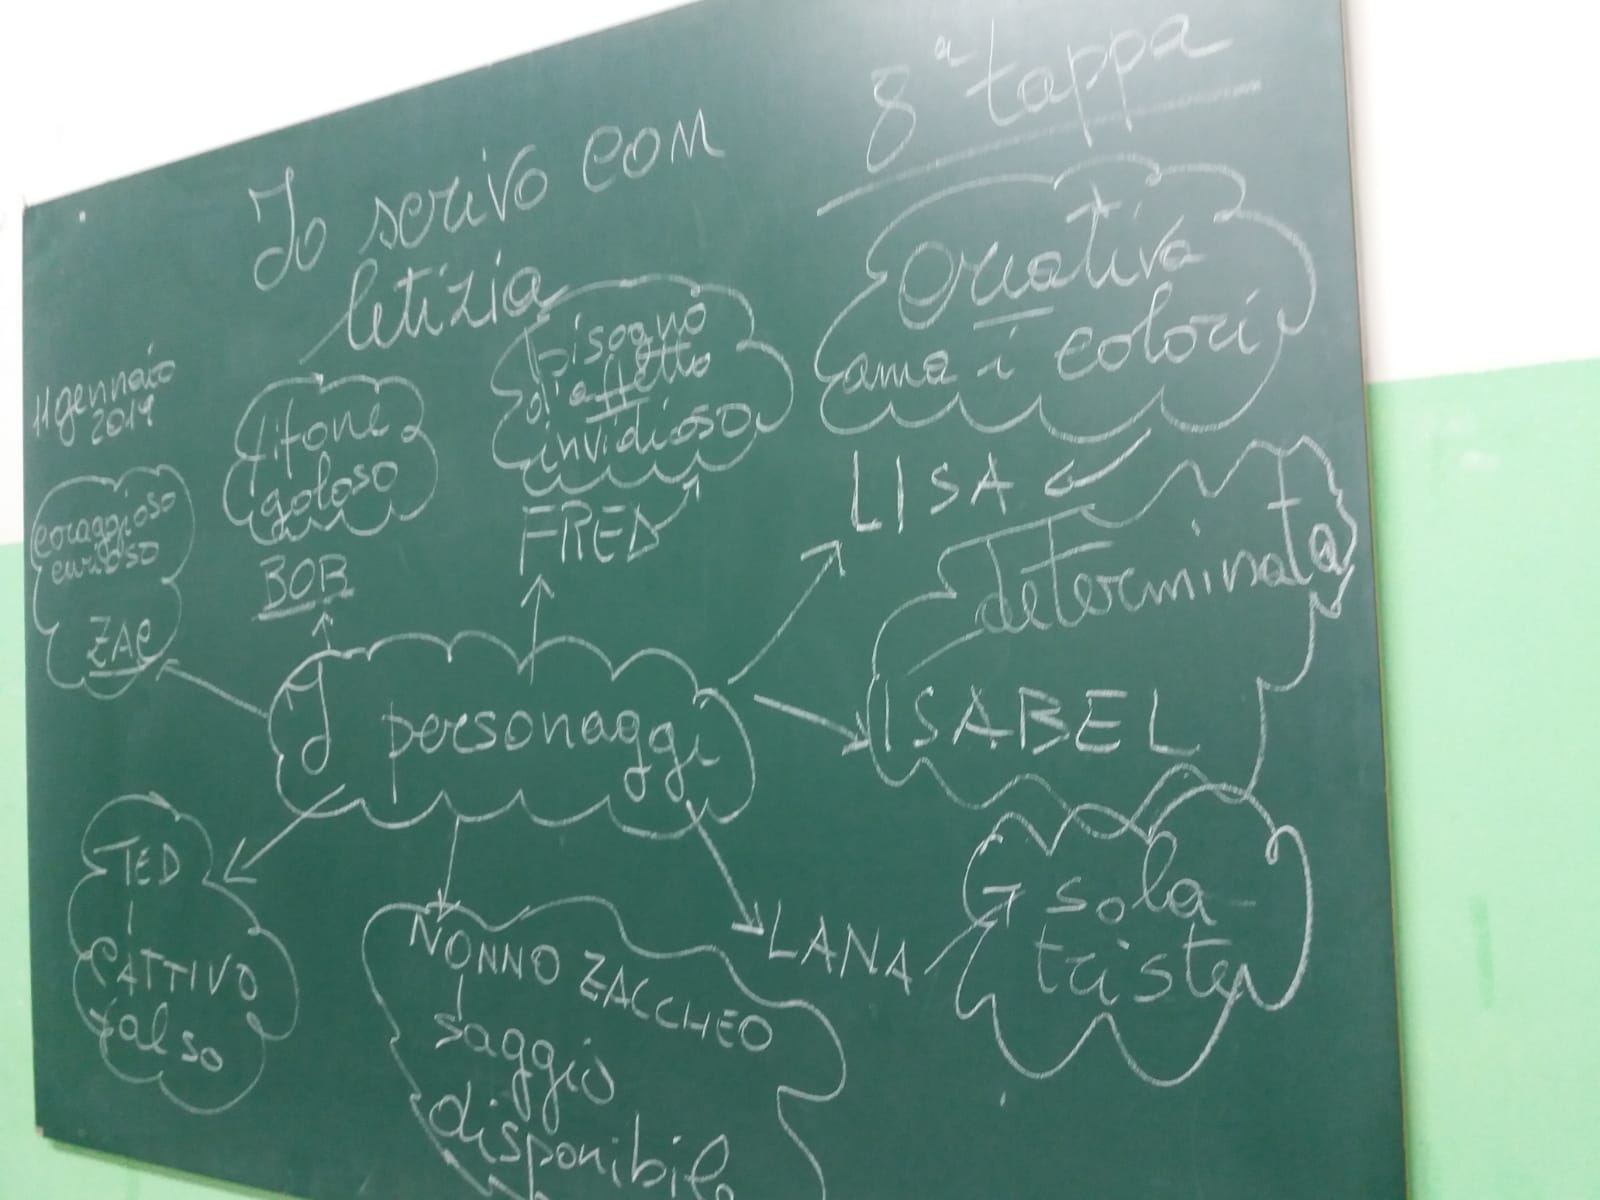 8ª tappa
Io scrivo con
letizia
11 gennaio
2019
coraggioso
curioso
ZAC
Tifone
goloso
BOB
bisogno
d'affetto
invidioso
FRED
Creativa
ama i colori
LISA
determinata
ISABEL
I personaggi
TED
CATTIVO
falso
NONNO ZACCHEO
saggio
disponibile
LANA
sola
triste